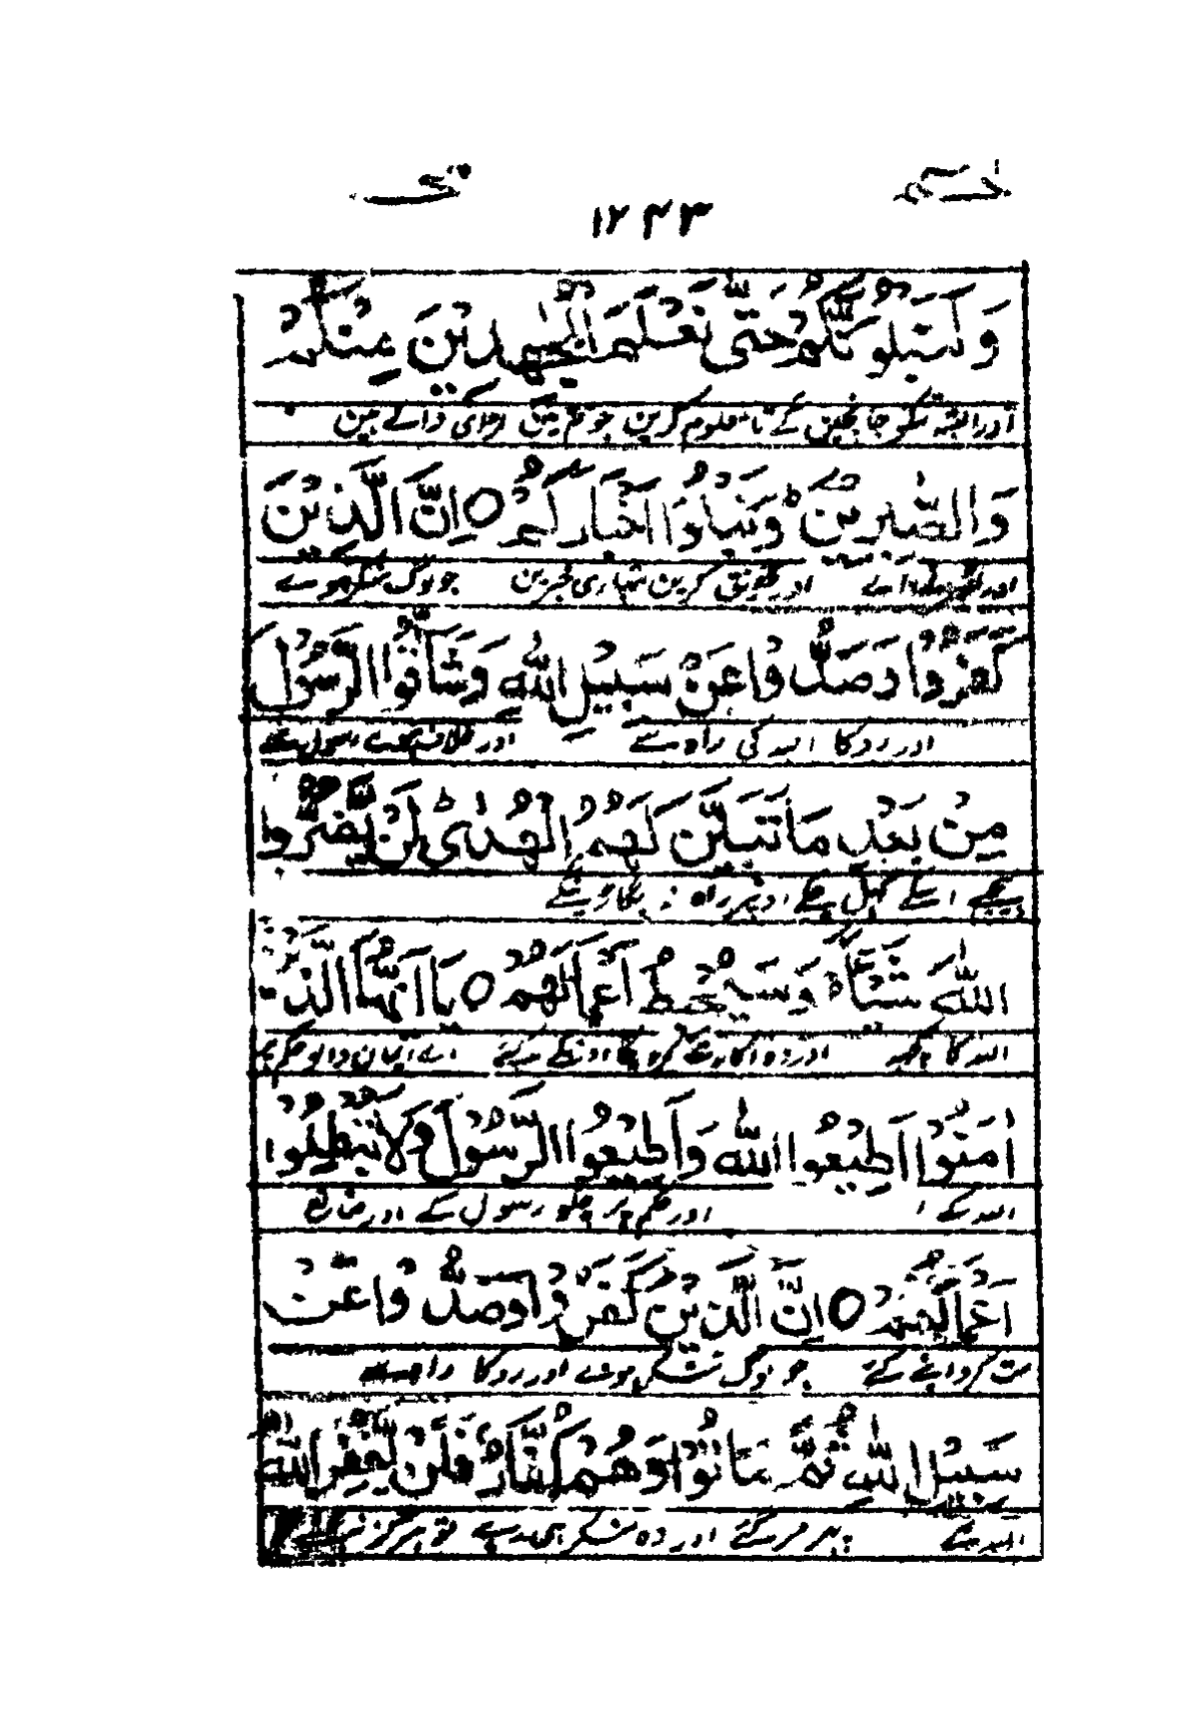 حٰمٓ محمد
١٢٤٣
وَلَنَبْلُوَنَّكُمْ حَتّٰى نَعْلَمَ الْمُجٰهِدِيْنَ مِنْكُمْ
اور البتہ تمکو جانچین گے تا معلوم کرین جو تم مین لڑائی والے ہین
وَالصّٰبِرِيْنَ وَنَبْلُوَا اَخْبَارَكُمْ ○ اِنَّ الَّذِيْنَ
اور تحقیق کرین تمہاری خبرین جو لوگ منکر ہوے
كَفَرُوْا وَصَدُّوْا عَنْ سَبِيْلِ اللّٰهِ وَشَآقُّوا الرَّسُوْلَ
اور روکا اللہ کی راہ سے اور خلاف ہوے رسول سے
مِنْ بَعْدِ مَا تَبَيَّنَ لَهُمُ الْهُدٰى لَنْ يَّضُرُّوا
پیچھے اسکے کہل چکے اونپر راہ نہ بگاڑینگے
اللّٰهَ شَيْئًا وَسَيُحْبِطُ اَعْمَالَهُمْ ○ يٰٓاَيُّهَا الَّذِيْنَ
اللہ کا کچہ اور وہ اکارت کریگا اونکے کئے اے ایمان والو حکم پر
اٰمَنُوْا اَطِيْعُوا اللّٰهَ وَاَطِيْعُوا الرَّسُوْلَ وَلَا تُبْطِلُوْا
اللہ کے اور حکم پر چلو رسول کے اور ضائع
اَعْمَالَكُمْ ○ اِنَّ الَّذِيْنَ كَفَرُوْا وَصَدُّوْا عَنْ
مت کرو اپنے کئے جو لوگ منکر ہوے اور روکا راہ سے
سَبِيْلِ اللّٰهِ ثُمَّ مَاتُوْا وَهُمْ كُفَّارٌ فَلَنْ يَّغْفِرَ اللّٰهُ
اللہ کے پہر مر گئے اور وہ منکر ہی رہے تو ہرگز نہ